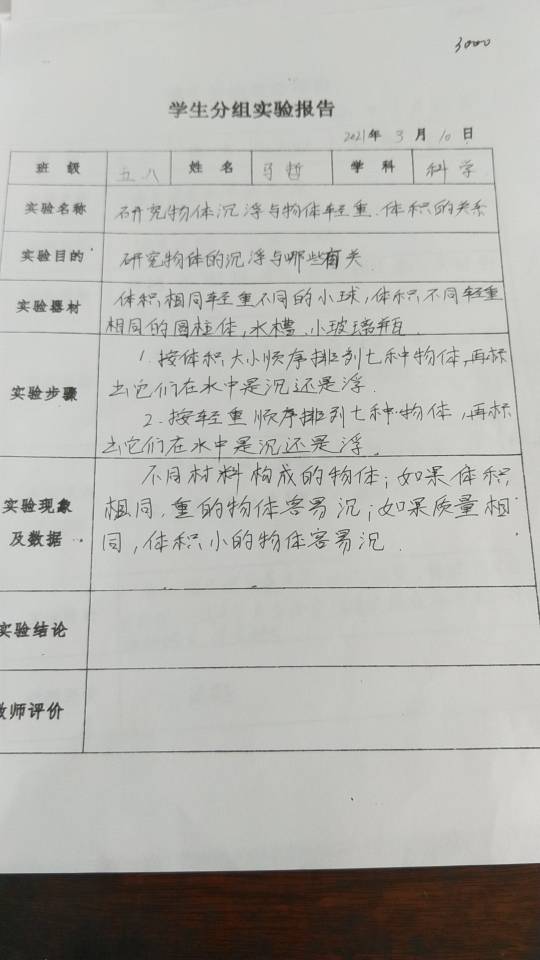 3000
学生分组实验报告
2021年 3 月 10 日
班 级 五八 姓 名 马哲 学 科 科学
实验名称 研究物体沉浮与物体轻重、体积的关系
实验目的 研究物体的沉浮与哪些有关
实验器材 体积相同轻重不同的小球,体积不同轻重
相同的圆柱体,水槽、小玻璃瓶
1. 按体积大小顺序排列七种物体,再标
实验步骤 出它们在水中是沉还是浮.
2. 按轻重顺序排列七种物体,再标
出它们在水中是沉还是浮.
不同材料构成的物体;如果体积
实验现象 相同,重的物体容易沉;如果质量相
及数据 同,体积小的物体容易沉.
实验结论
教师评价